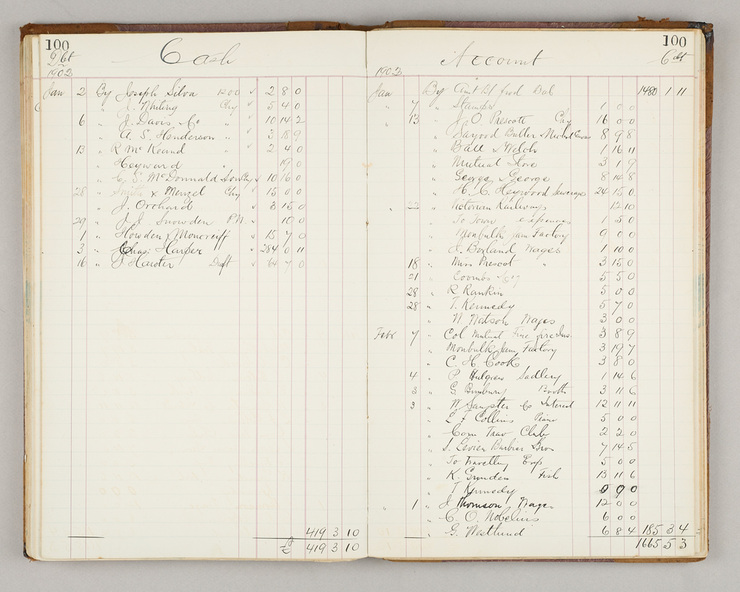 100
Cash
Dbt
1902
Jan 2 By Joseph Silva 1200 2 8 0
" " Chq " 5 4 0
6 " J. Davis " 10 14 2
" A. S. Henderson " 3 18 9
13 " R Mc Keand " 2 4 0
" Heyward " 19 0
" McDonnald " 10 16 0
28 " & Menzel Chq " 15 0 0
" J. Orchard " 8 15 0
29 " J. J. Snowden P.N. " 10 0
1 " Howden & Moncreiff " 15 7 0
3 " Chas. Harper " 284 0 11
16 " Draft " 64 7 0
419 3 10
419 3 10
100
Account
Cdt
1902
Jan By Amt Bt fwd Bal 1480 1 11
" 7 " Stamps 1 0 0
" 13 " J O Prescott Chq 16 0 0
" 8 9 8
" Ball & Welch 1 16 11
" Mutual Store 3 1 9
" George & George 8 14 8
" H. C. Heywood 24 15 0
" 22 " Victorian Railways 12 10
" To Town expenses 1 5 0
" Monbulk Jam Factory 9 0 0
" J. Borland Wages 1 10 0
18 " Miss Prescot " 3 15 0
21 " Coombs 5 5 0
28 " R. Rankin 5 0 0
28 " T. Kennedy 5 7 0
" W. Watson Wages 3 0 0
Feb 7 " Col Mutual Fire Ins. 3 8 9
" Monbulk Jam Factory 3 19 7
" C. H. Cook 3 8 0
4 " P. Hulgren Sadlery 1 14 6
3 " G. Boots 3 11 6
3 " W. Sangster & Co Interest 12 11 11
" E. J. Collins Piano 5 0 0
" Com Trav Club 2 2 0
" Bros 7 14 5
" To Travelling Exps 5 0 0
" K. Fish 13 11 6
" T Kennedy 0 9 0
" 1 " J. Thomson Wages 12 0 0
" C. O. Nobelius 6 0 0
" G. Westlund 6 8 4 185 3 4
1665 5 3